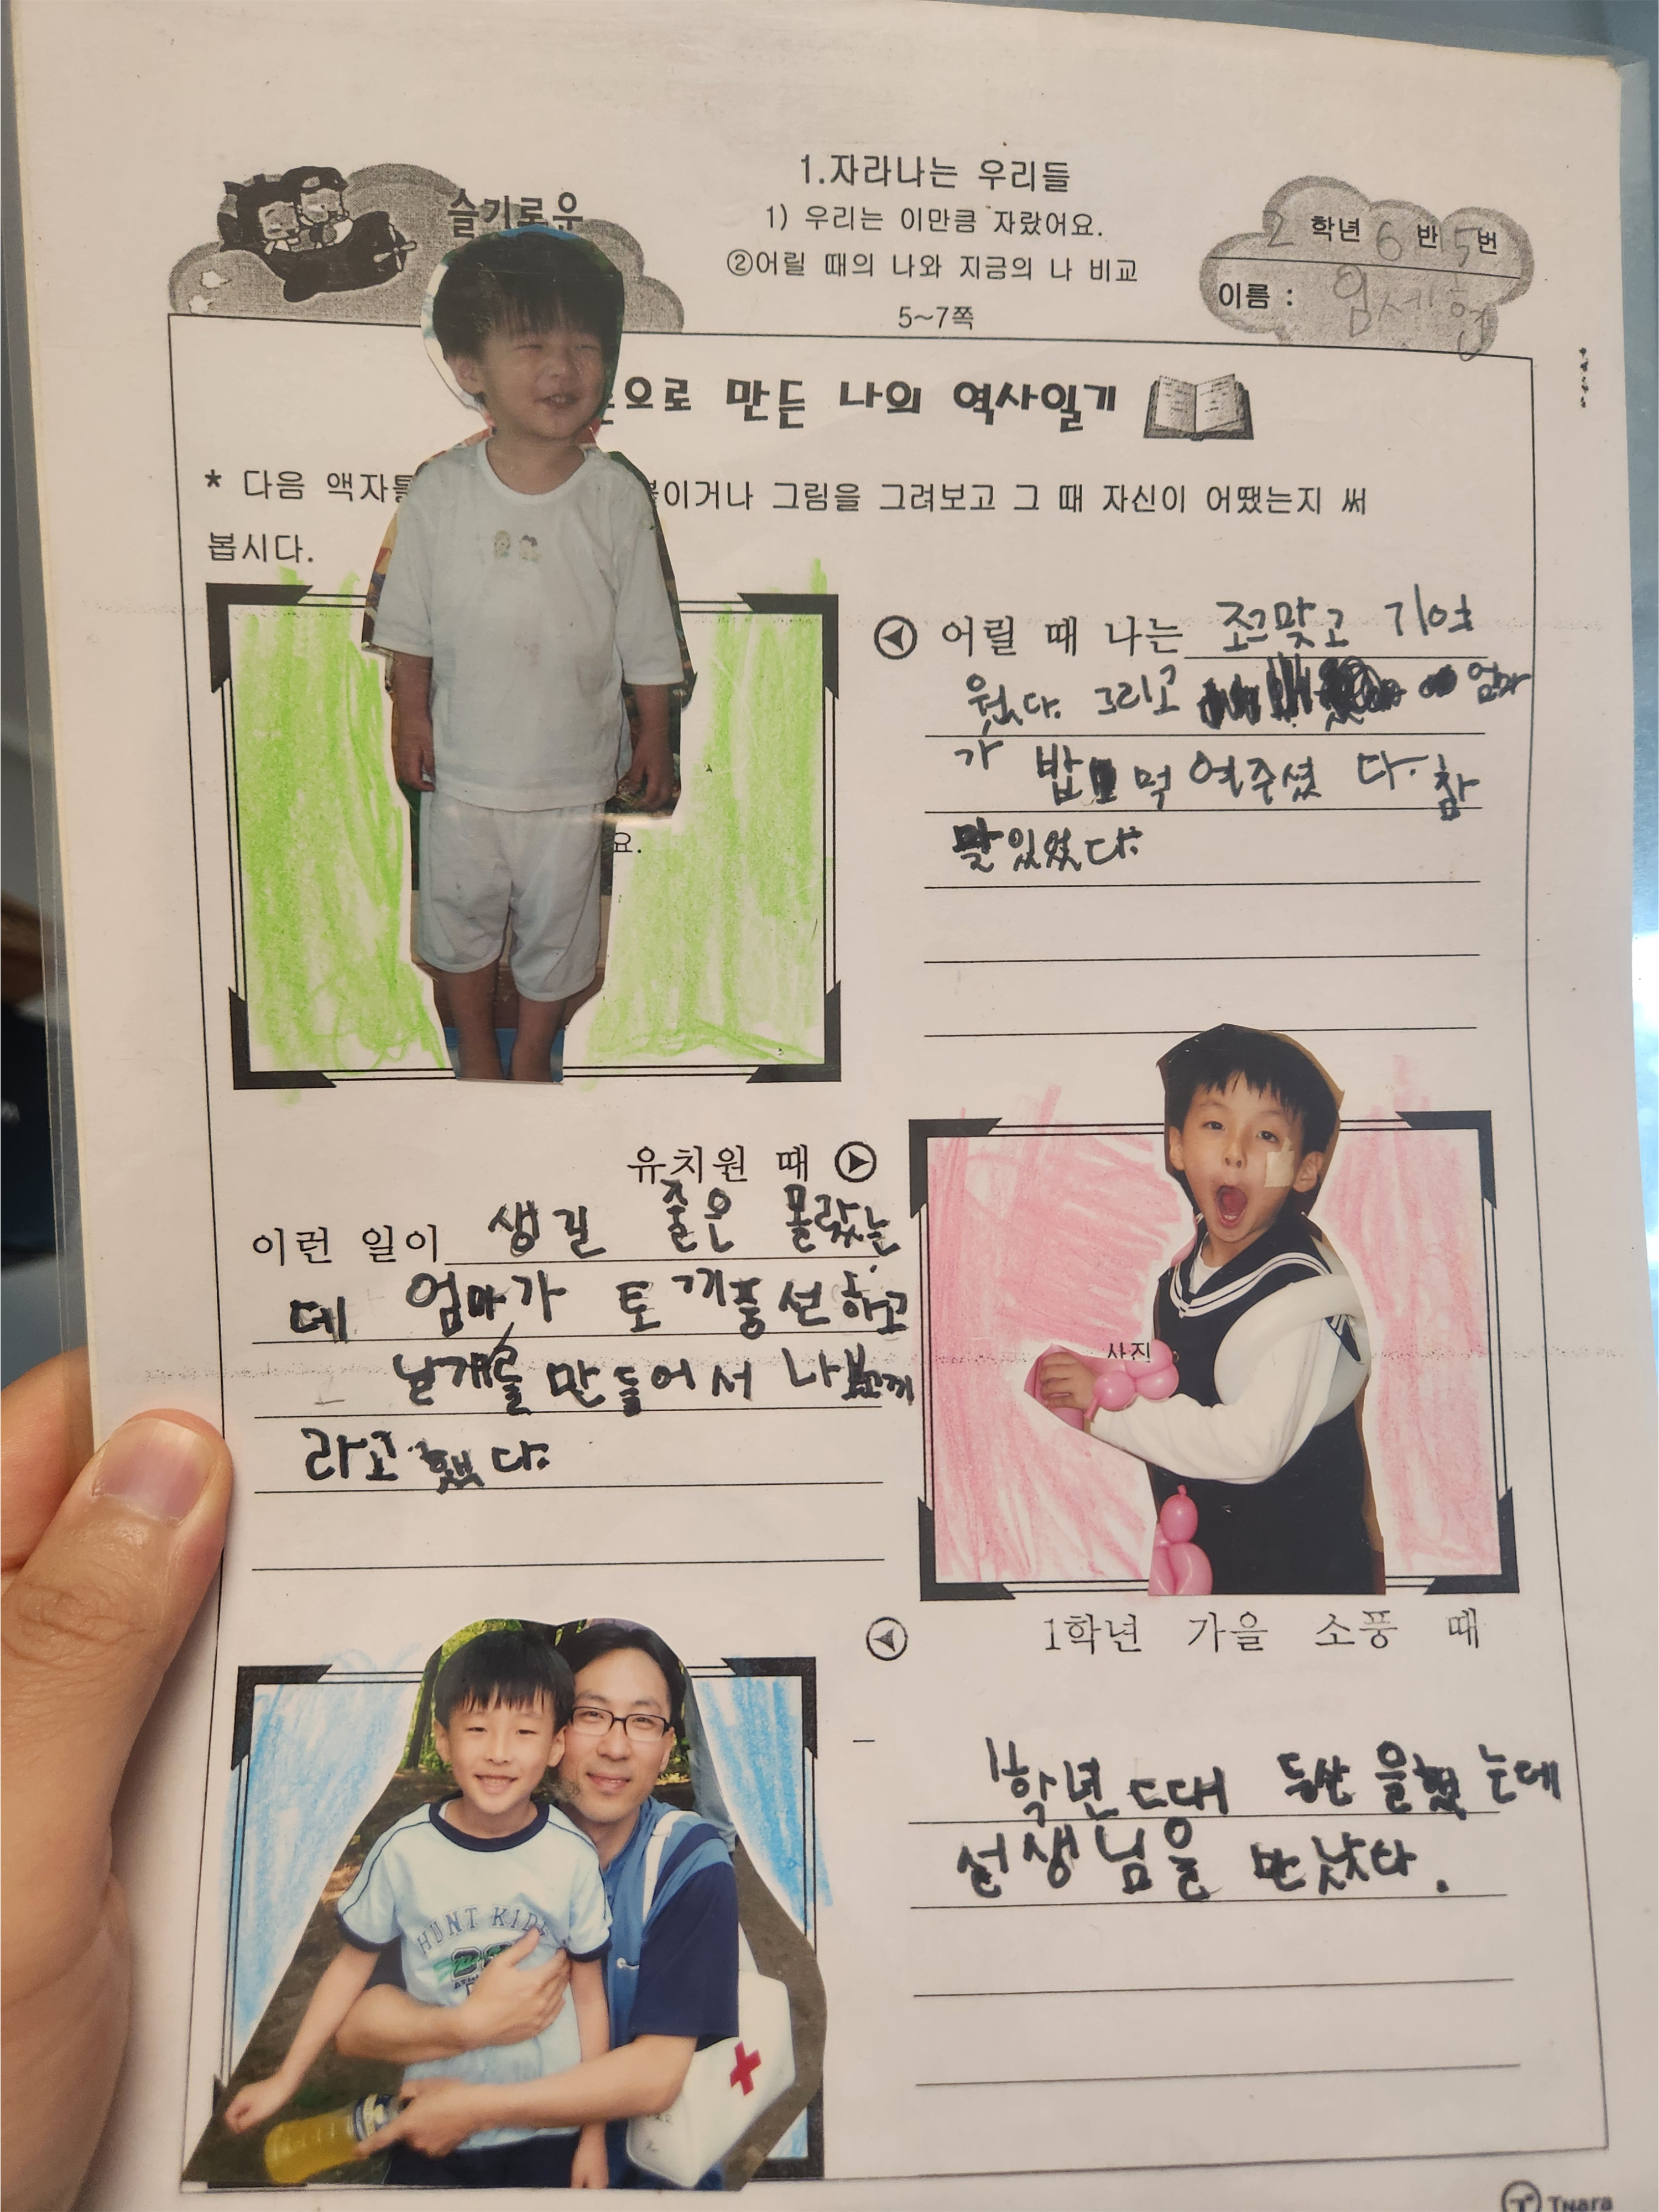 슬기로운
1.자라나는 우리들
1) 우리는 이만큼 자랐어요.
②어릴 때의 나와 지금의 나 비교
5~7쪽
2 학년 6 반 15번
이름 : 엄세현
으로 만든 나의 역사일기
* 다음 액자틀 붙이거나 그림을 그려보고 그 때 자신이 어땠는지 써
봅시다.
어릴 때 나는 조그맞고 기여
웠다. 그리고 엄마
가 밥 먹여주셨다. 참
맜있었다.
요.
유치원 때
이런 일이 생길 줄은 몰랐는
데 엄마가 토끼풍선하고
날개를 만들어서 나보끼
라고 했다.
사진
1학년 가을 소풍 때
1학년 때 등산을했는데
선생님을 만났다.
HUNT KIDS
Tnara